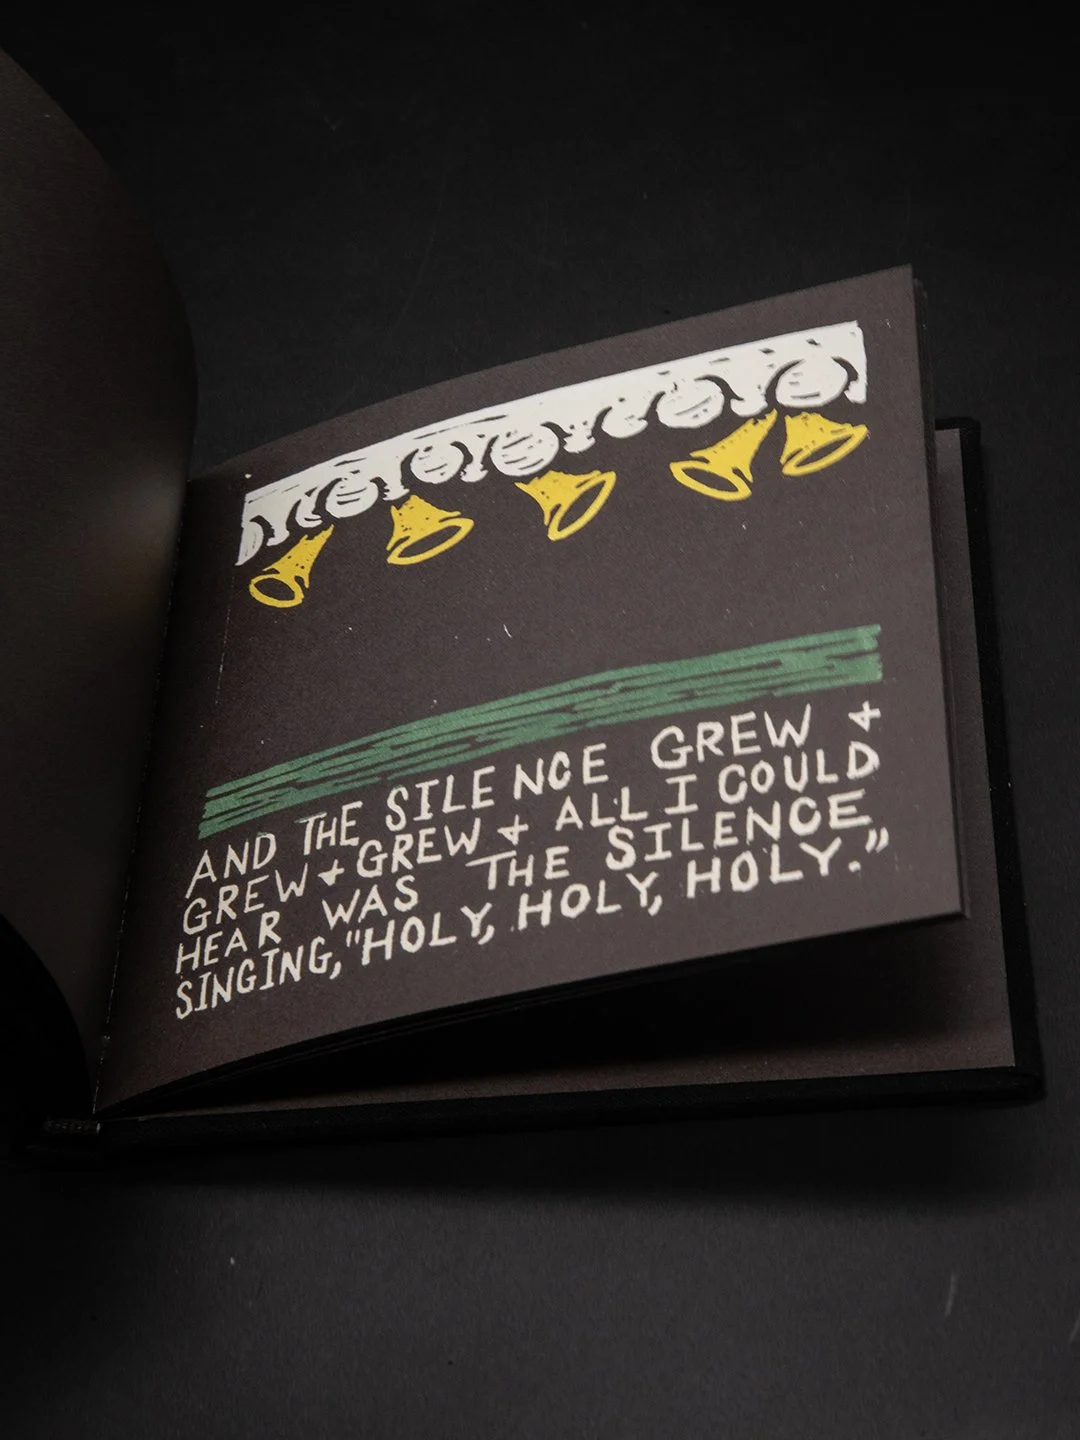 AND THE SILENCE GREW +
GREW + GREW + ALL I COULD
HEAR WAS THE SILENCE
SINGING, "HOLY, HOLY, HOLY."